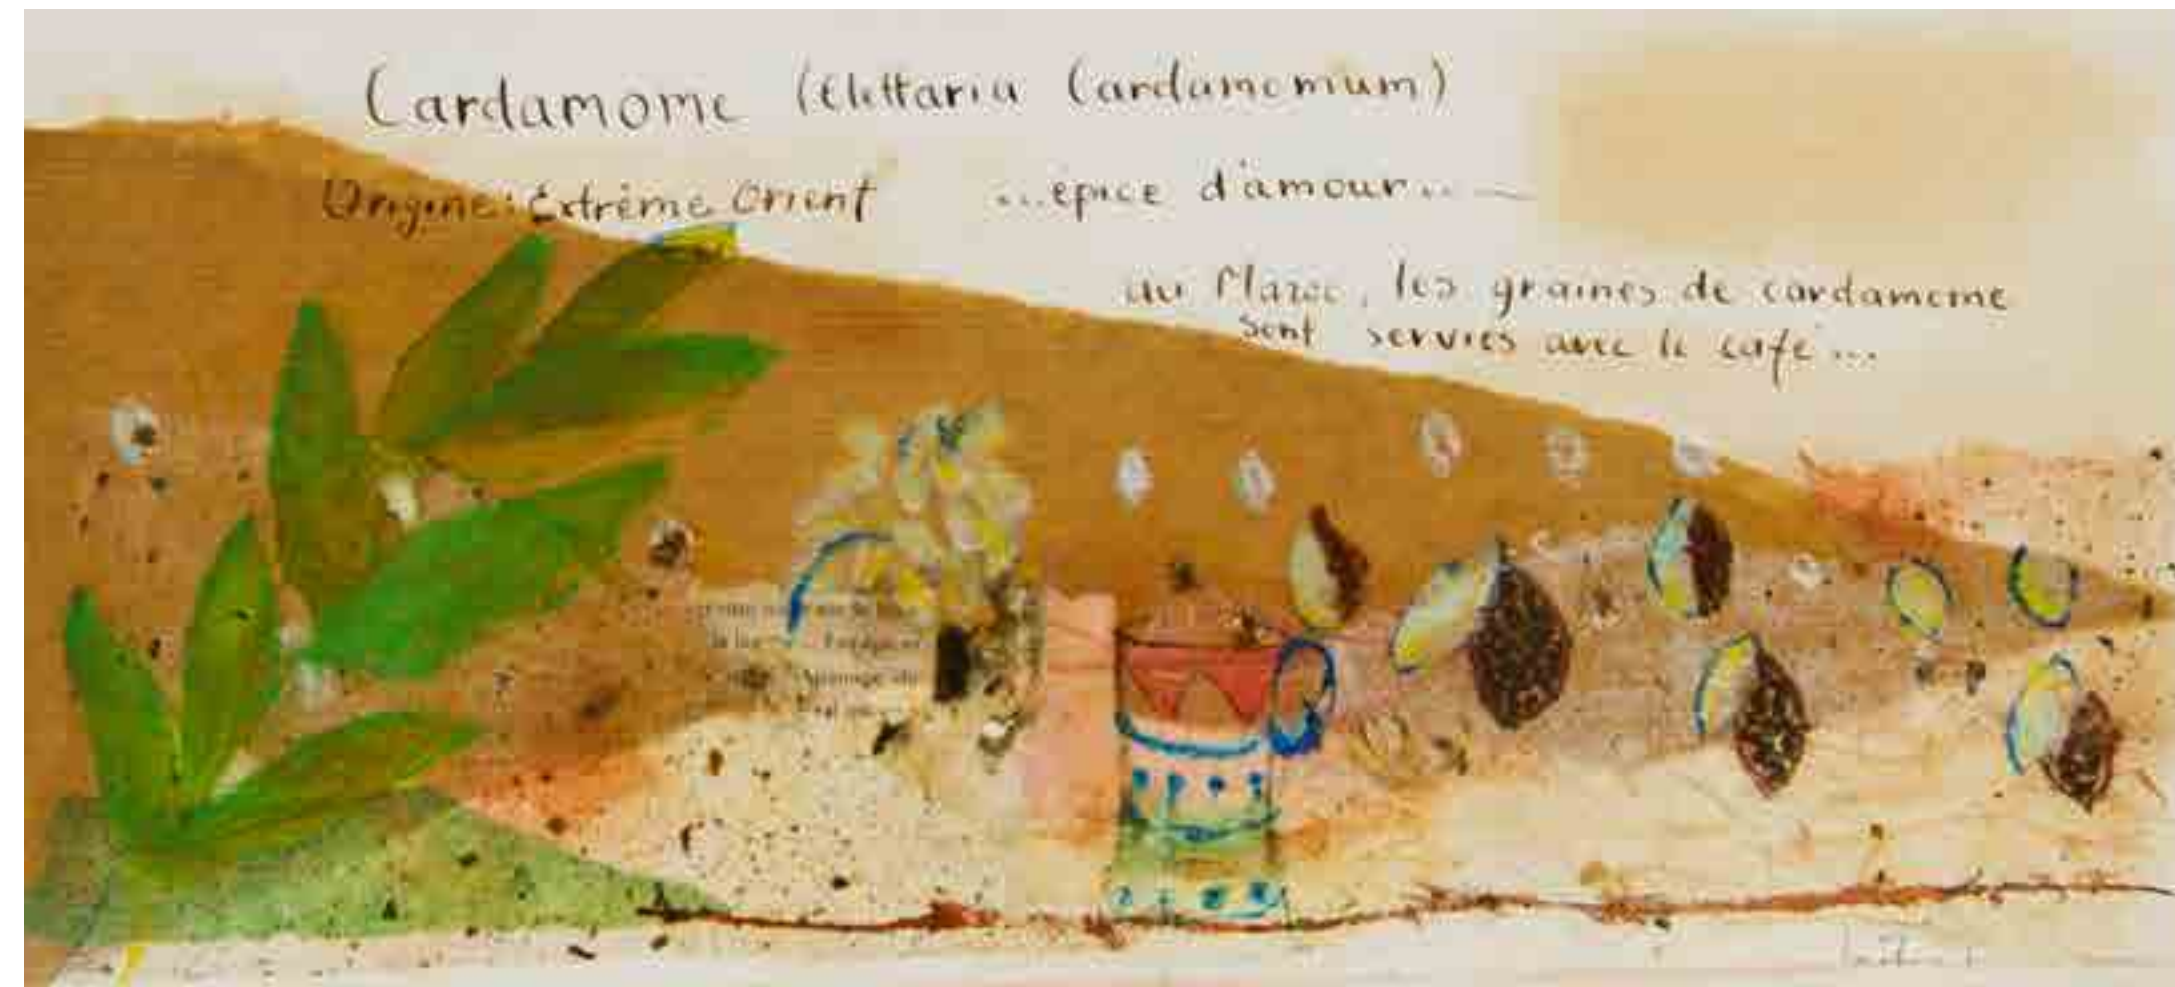 Cardamome (Elettaria Cardamomum)
Origine: Extrême Orient ...épice d'amour...
au Maroc, les graines de cardamome
sont servies avec le café...